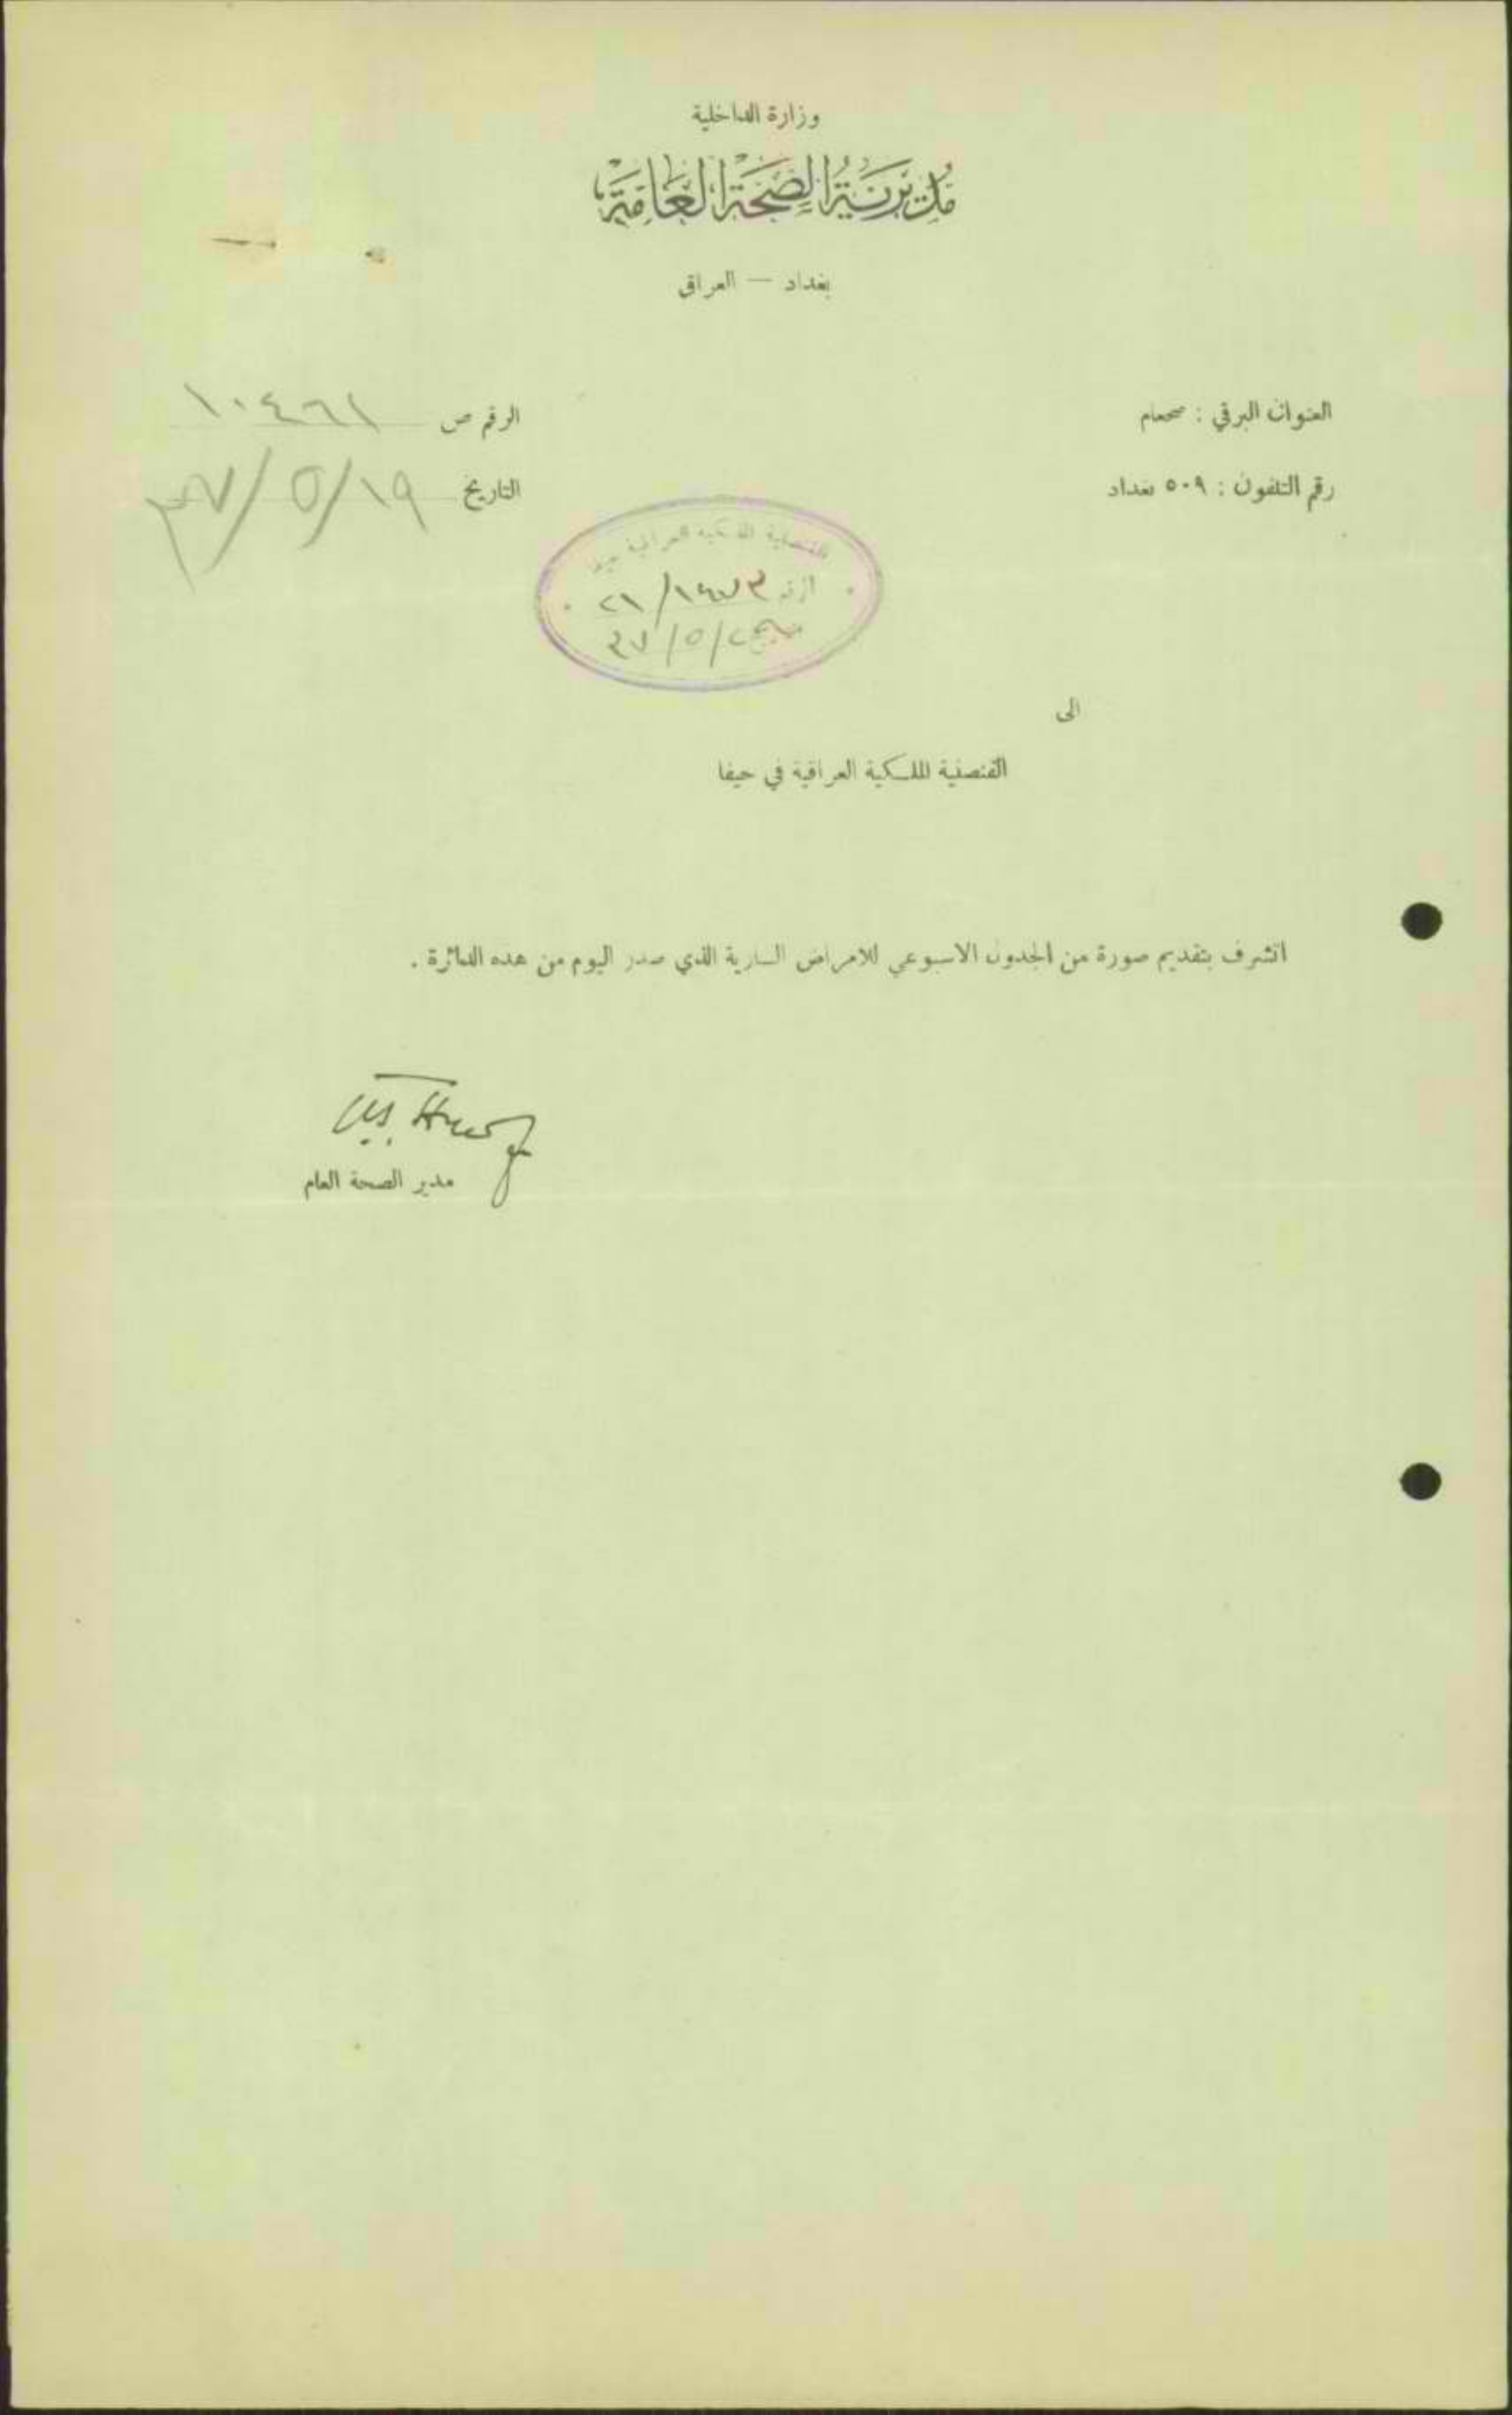 وزارة الداخلية
مديرية الصحة العامة
بغداد — العراق
العنوان البرقي : صحعام
الرقم ص ١٠٤٦١
رقم التلفون : ٥٠٩ بغداد
التاريخ ١٩/٥/٣٧
القنصلية الملكية العراقية حيفا
الى
القنصلية الملكية العراقية في حيفا
اتشرف بتقديم صورة من الجدول الاسبوعي للامراض السارية الذي صدر اليوم من هذه الدائرة .
مدير الصحة العام